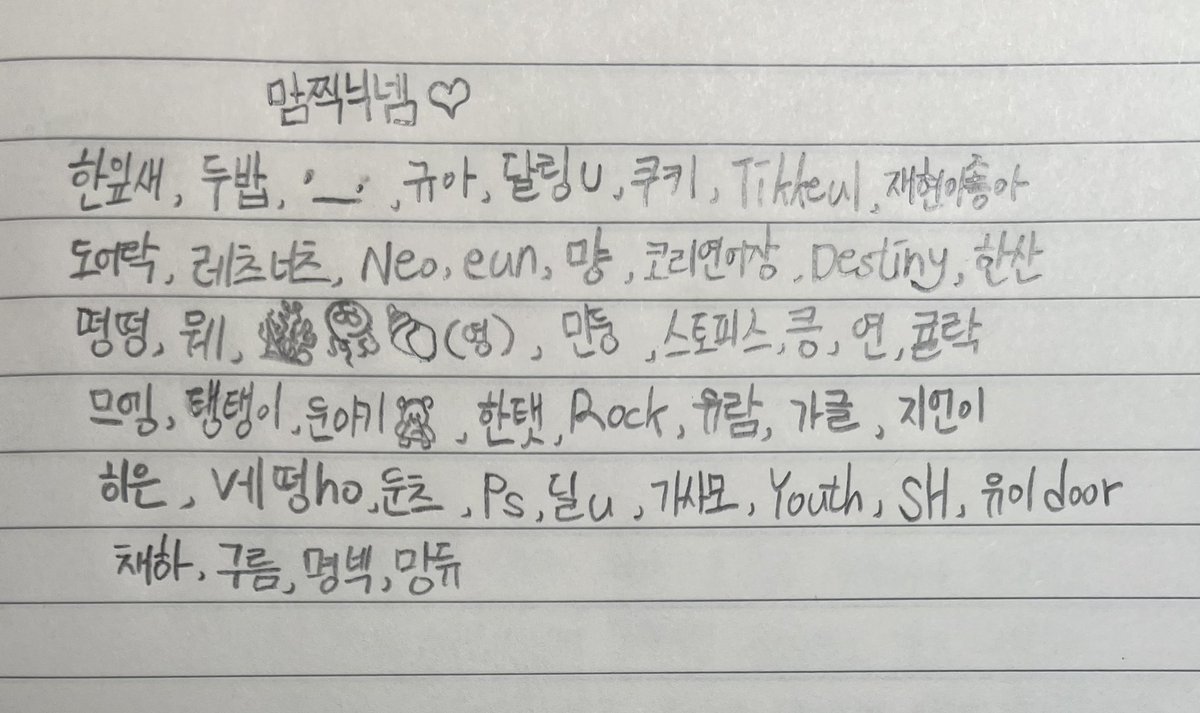 맘찍늬넴♡
한잎새, 두밥, •_•, 규아, 달링U, 쿠키, Tikkeul, 재현이좋아
도어락, 레츠너츠, Neo, eun, 먕, 코리연어장, Destiny, 한산
떵떵, 뭬, (영), 만둥, 스토피스, 킁, 연, 귤락
므엥, 탱탱이, 둔야키, 한탯, Rock, 유람, 가글, 지언이
히은, 베떵ho, 둔츠, Ps, 딜u, 가사모, Youth, SH, 유이door
채하, 구름, 명벡, 망듀